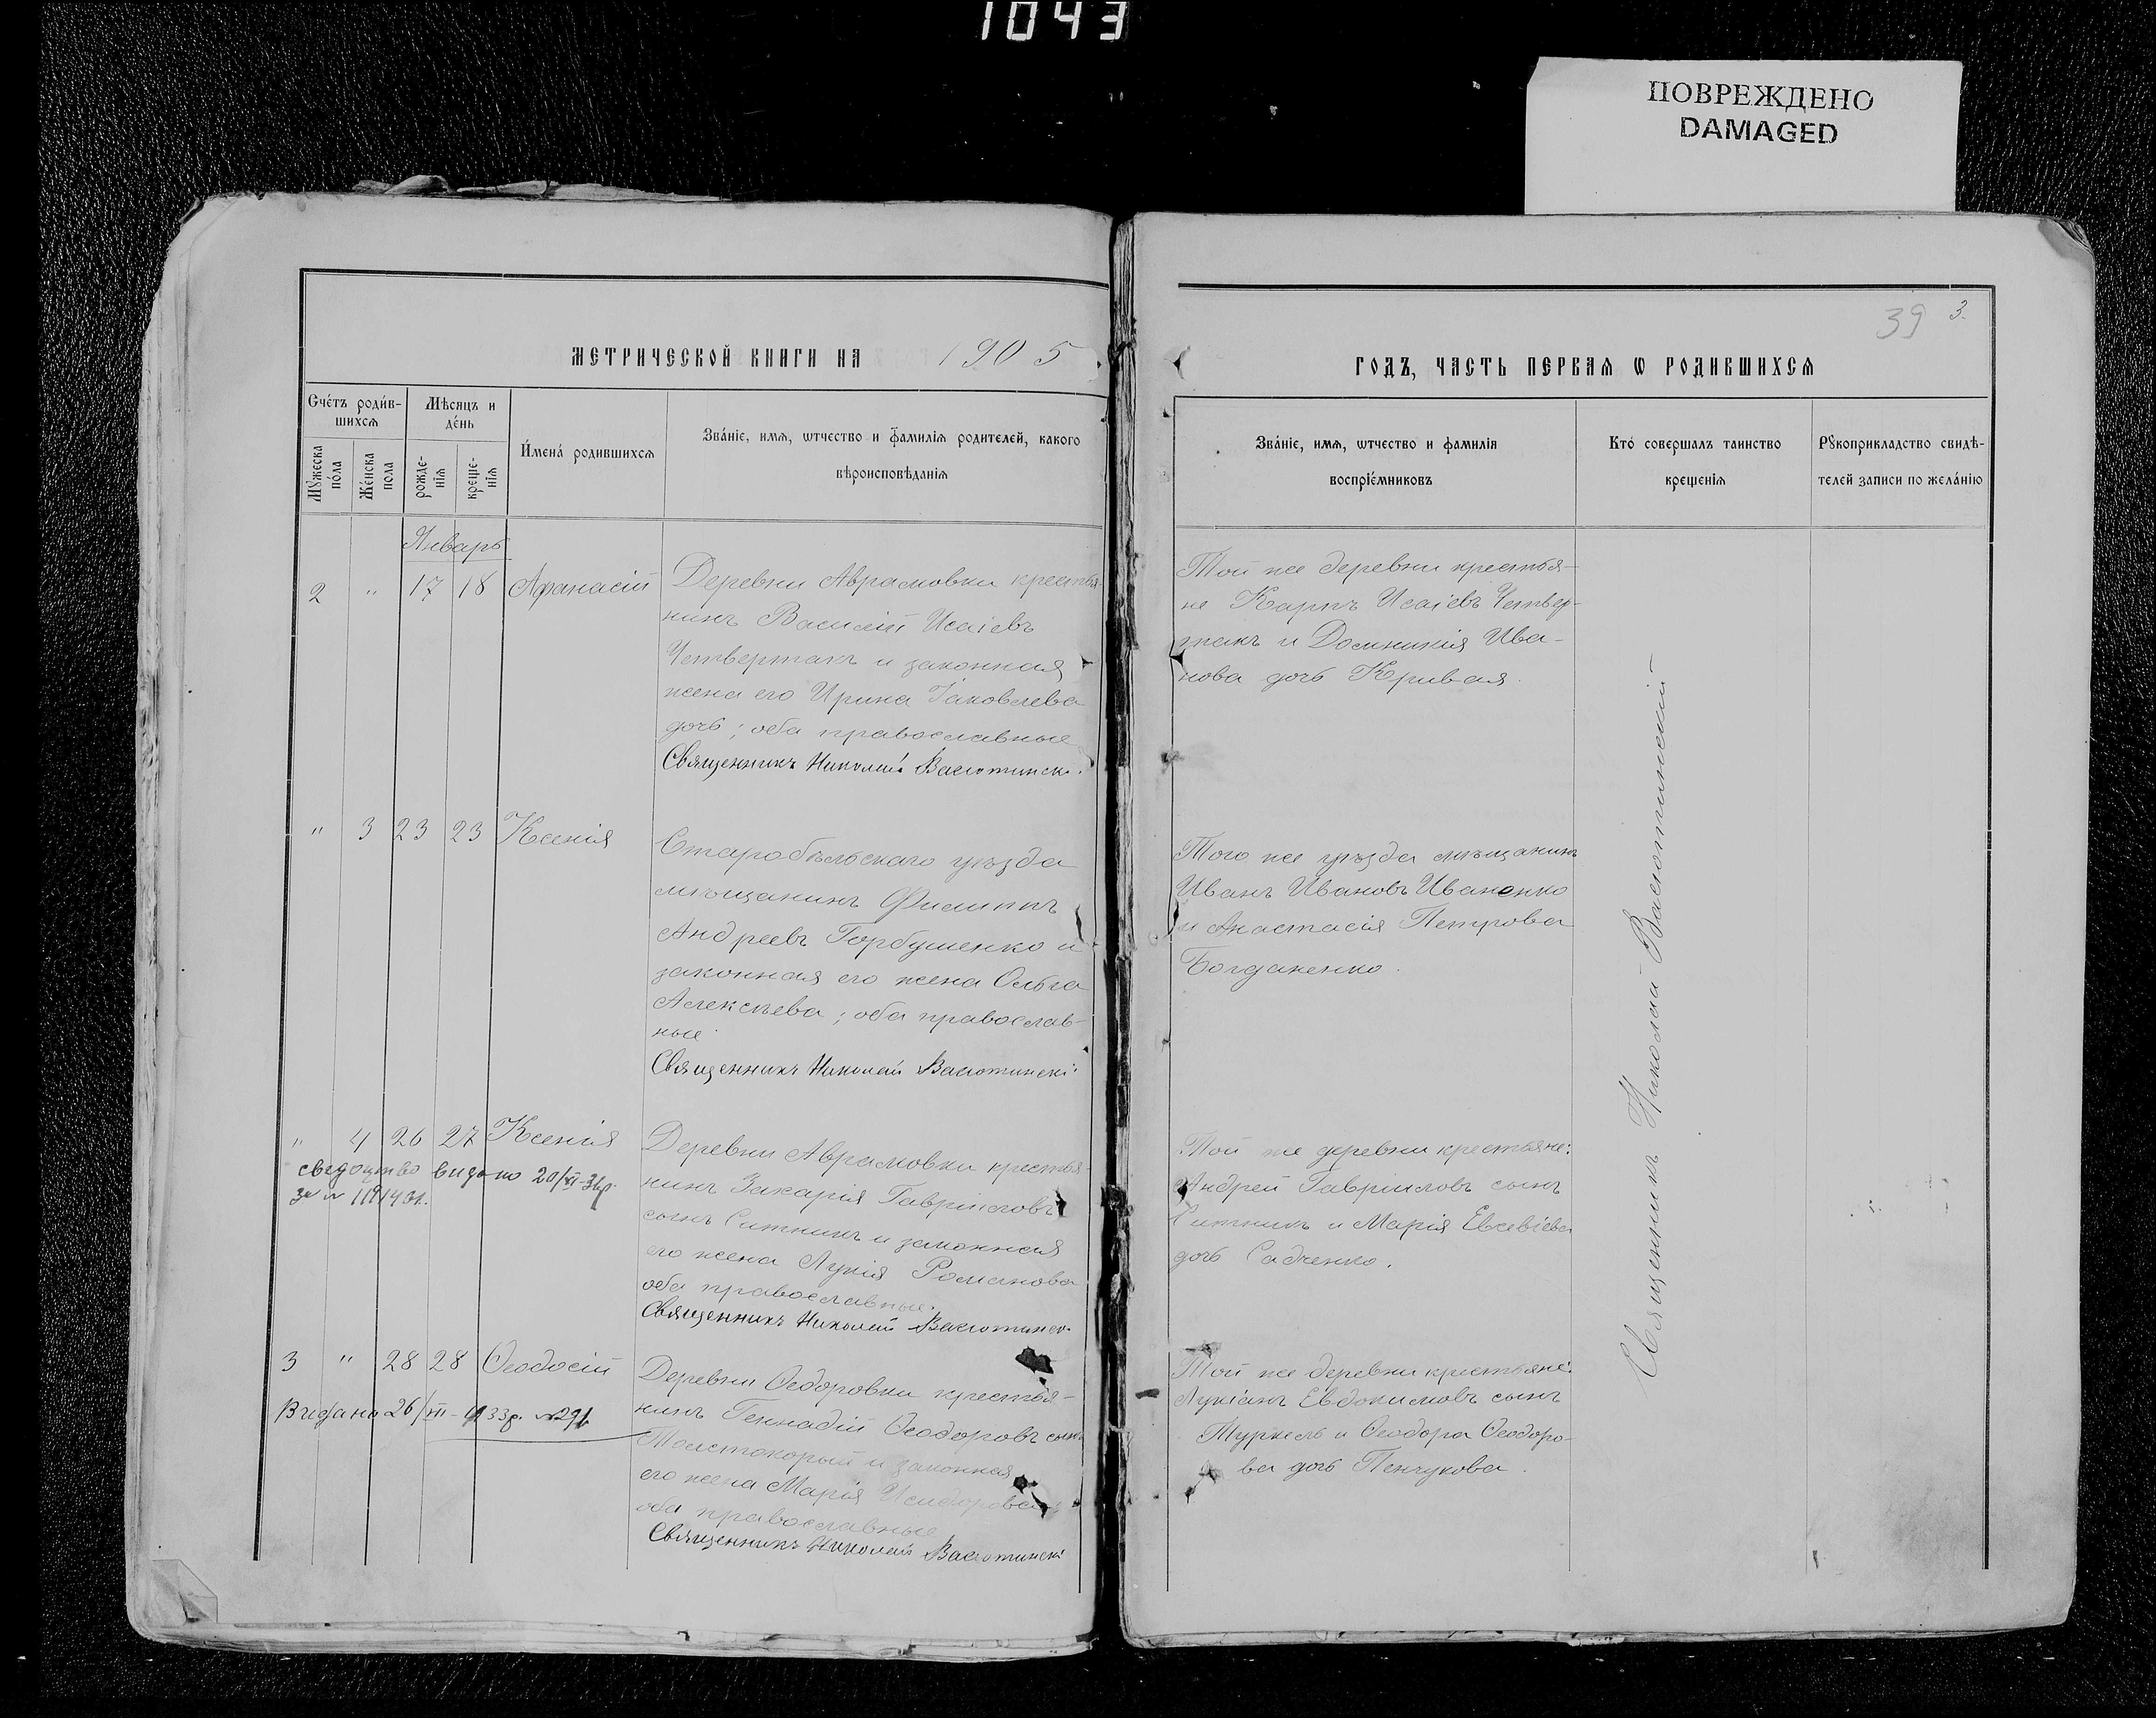 1043
ПОВРЕЖДЕНО
DAMAGED
39 3.
МЕТРИЧЕСКОЙ КНИГИ НА 1905
ГОДЪ, ЧАСТЬ ПЕРВАѦ Ѡ РОДИВШИХСѦ
Счétъ роди́в-
шихсѧ
Мѣ́сяцъ и
де́нь
Мꙋ́жеска
по́ла
Же́нска
пола
рожде-
нїѧ
креще-
нїѧ
И́мена́ родившихсѧ
Зва́нїе, имѧ, ѿтчество и фамилїѧ родителей, какого
вѣроисповѣданїѧ
Зва́нїе, имѧ, ѿтчество и фамилїѧ
воспрїе́мниковъ
Кто́ совершалъ таинство
крещенїѧ
Рꙋкоприкладство свидѣ-
телей записи по жела́нїю
Январь
2 " 17 18 Афанасій
Деревни Аврамовки крестья-
нинъ Василій Исаіевъ
Четвертакъ и законная
жена его Ирина Іаковлева
дочь; оба православные
Священникъ Николай Васютински.
Той же деревни крестья-
не Карпъ Исаіевъ Четвер-
такъ и Домникія Ива-
нова дочь Кривая.
" 3 23 23 Ксенія
Старобѣльскаго уѣзда
мѣщанинъ Филиппъ
Андреевъ Горбушенко и
законная его жена Ольга
Алексѣева; оба православ-
ные
Священникъ Николай Васютинскі.
Того же уѣзда мѣщанинъ
Иванъ Ивановъ Иваненко
и Анастасія Петрова
Богданенко.
" 4 26 27 Ксенія
свідоцтво видано 20/XI-
за №
Деревни Аврамовки крестья-
нинъ Захарія Гавріиловъ
сынъ Ситникъ и законная
его жена Лукія Романова
оба православные.
Священникъ Николай Васютинск.
Той же деревни крестьяне:
Андрей Гавріиловъ сынъ
Ситникъ и Марія Евсевіева
дочь Садченко.
3 " 28 28 Ѳеодосій
Видано 26/VIII-1933р. №291
Деревни Ѳедоровки крестья-
нинъ Геннадій Ѳеодоровъ сынъ
Толстокорый и законная
его жена Марія Исидорова
оба православные
Священникъ Николай Васютинскі
Той же деревни крестьяне:
Лукіанъ Евдокимовъ сынъ
и Ѳеодора Ѳеодоро-
ва дочь Пенчукова.
Священникъ Николай Васютинскій